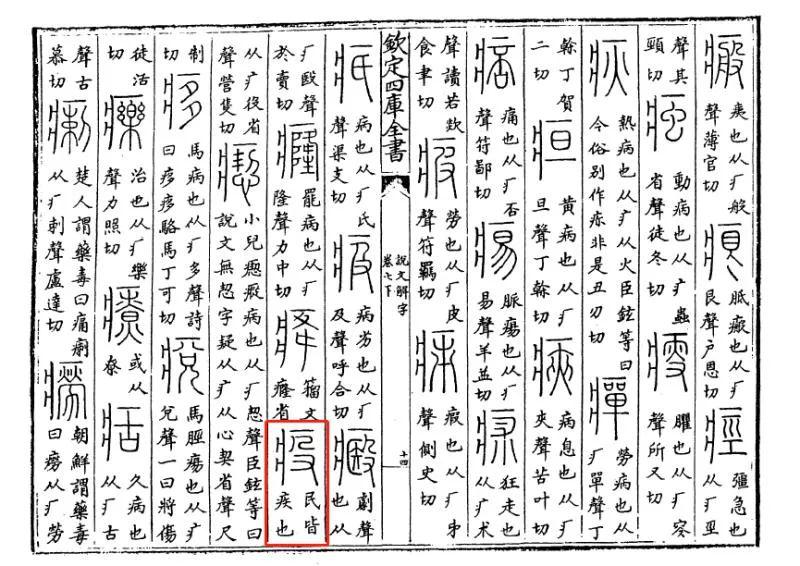 瘢痍也从疒般聲薄官切痕胝瘢也从疒艮聲户恩切痙彊急也从疒巠
聲其頸切痋動病也从疒蟲省聲徒冬切瘦臞也从疒叜聲所又切
疢熱病也从疒从火臣鉉等曰今俗别作疹非是丑刃切癉勞病也从疒單聲丁
榦丁賀二切疸黄病也从疒旦聲丁榦切㾜病息也从疒夾聲苦叶切
痞痛也从疒否聲符鄙切痬脈瘍也从疒易聲羊益切狂走也从疒术
聲讀若欻食聿切疲勞也从疒皮聲符羈切瑕也从疒𠂔聲側史切
欽定四庫全書
説文解字
卷七下
十四
疧病也从疒氏聲渠支切㽺病劣也从疒及聲呼合切劇聲也从
疒殹聲於賣切癃罷病也从疒隆聲力中切籀文癃省疫民皆疾也
从疒役省聲營隻切瘛小兒瘛瘲病也从疒恝聲臣鉉等曰説文無恝字疑从疒从心契省聲尺
制切痑馬病也从疒多聲詩曰痑痑駱馬丁可切痥馬脛瘍也从疒兌聲一曰將傷
徒活切治也从疒樂聲力照切療或从尞久病也从疒古
聲古慕切瘌楚人謂藥毒曰痛瘌从疒刺聲盧達切癆朝鮮謂藥毒曰癆从疒勞